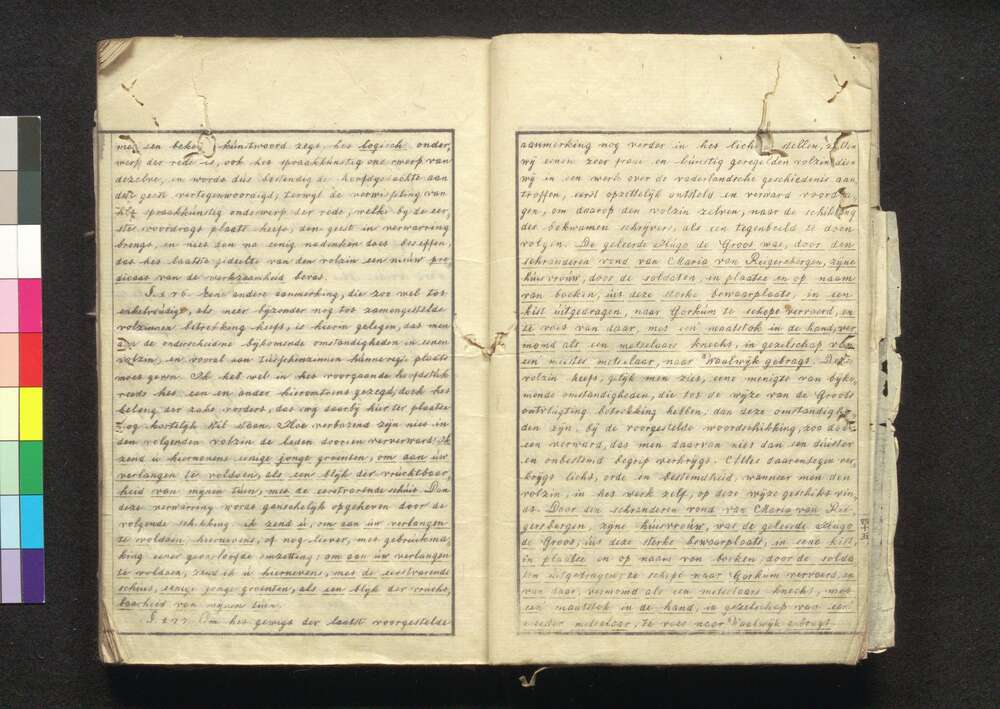 met een kunstwoord zegt, het logisch onder,
werp der rede is, ook het spraakkunstig onderwerp van
dezelve, en wordt dus bestendig de hoofdgedachte aan
den geest vertegenwoordigd; terwijl de verwisseling van
het spraakkunstig onderwerp der rede, welke by de eer,
ste voordragt plaats heeft, den geest in verwarring
brengt, en niet dan na eenig nadenken doet beseffen,
dat het laatste gedeelte van den volzin een nieuw pre,
dicaat van de werkzaamheid bevat.
§. 276. Eene andere aanmerking, die zoo wel tot
enkelvoudige, als meer byzonder nog tot zamengestelde
volzinnen betrekking heeft, is hierin gelegen, dat men
aan de onderscheidene bijkomende omstandigheden in eenen
volzin, en vooral aan tusschenzinnen hunne regte plaats
moet geven. Ik heb wel in het voorgaande hoofdstuk
reeds het een en ander hieromtrent gezegd; doch het
belang der zake vordert, dat wij daarbij hier ter plaatse
nog kortelijk stil staan. Hoe verbazend zijn niet in
den volgenden volzin de leden dooreen verwerward: ik
zend u hiernevens eenige jonge groenten, om aan uw
verlangen te voldoen, als een blijk der vruchtbaar,
heid van mynen tuin, met de eerstvarende schuit. Dan
deze verwarring wordt gansehelijk opgeheven door de
volgende schikking: ik zend u, om aan uw verlangen
te voldoen, hiernevens, of nog liever, met gebruikma,
king eener geoorloofde omzetting: om aan uw verlangen
te voldoen, zend ik u hiernevens, met de eerstvarende
schuit, eenige jonge groenten, als een blyk der vrucht,
baarheid van mynen tuin.
§. 277. Om het gewigt der laatst voorgestelde
aanmerking nog verder in het licht stellen, zullen
wij eenen zeer fraai en kunstig geregelden volzin, dien
wij in een werk over de vaderlandsche geschiedenis aan,
troffen, eerst opzettelijk ontsteld en verward voordra,
gen, om daarop den volzin zelven, naar de schikking
des bekwamen schrijvers, als een tegenbeeld te doen
volgen. De geleerde Hugo de Groot was, door den
schranderen vond van Maria van Reigersbergen, zijne
huisvrouw, door de soldaten, in plaatse en op naam
van boeken, uit deze sterke bewaarplaats, in een
kist uitgedragen, naar Gorkum te schepe vervoerd, en
te voet van daar, met een maatstok in de hand, ver,
momd als een metselaars knecht, in gezelschap van
een meester metselaar, naar Waalwijk gebragt. Deze
volzin heeft, gelijk men ziet, eene menigte van bijko,
mende omstandigheden, die tot de wijze van de Groots
ontvlugting betrekking hebben; dan deze omstandighe,
den zijn, bij de voorgestelde woordschikking, zoo door
een verward, dat men daarvan niet dan een duister
en onbestemd begrip verkrygt. Alles daarentegen ver,
krygt licht, orde en bestemdheid, wanneer men den
volzin, in het werk zelf, op deze wyze geschikt vin,
dt: Door den schranderen vond van Maria van Rei,
gersbergen, zyne huisvrouw, was de geleerde Hugo
de Groot, uit deze sterke bewaarplaats, in eene kist,
in plaatse en op naam van boeken, door de solda
ten uitgedragen, te schepe naar Gorkum vervoerd, en
van daar, vermomd als een metselaars knecht, met
een maatstok in de hand, in gezelschap van een
meester metselaar, te voet naar Waalwyk gebragt.